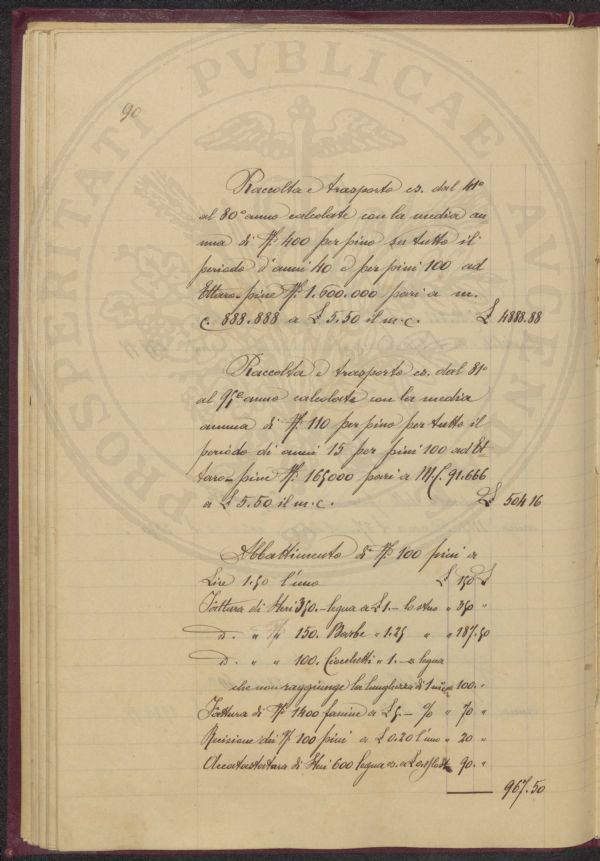 90
PROSPERITATI PVBLICAE AVGENDAE
Raccolta e trasporto cs. dal 41°
al 80° anno calcolate con la media an
nua di N° 400 per pino su tutto il
periodo d'anni 40 e per pini 100 ad
Ettaro- pine N° 1.600.000 pari a m.
c. 888.888 a £ 5.50 il m.c. £ 4888.88
Raccolta e trasporto cs. dal 81°
al 95° anno calcolate con la media
annua di N° 110 per pino per tutto il
periodo di anni 15 per pini 100 ad Et
taro- pine N° 165000 pari a M.C. 91.666
a £ 5.50 il m.c. £ 504 16
Abbattimento di N° 100 pini a
Lire 1.50 l'uno £ 150 £
Fattura di Steri 350.- legna a £ 1.- lo stero " 350 "
d. " " 150. Barbe " 1.25 " " 187.50
d. " " 100. Ciocchetti " 1.- e legna
che non raggiunge la lunghezza di 1 " 100. "
Fattura di N° 1400 fascine a £ 5.- % " 70 "
Recisione dei N° 100 pini a £ 0.20 l'uno " 20 "
Accatastatura di Steri 600 legna cs. a £ 0.15 " 90. "
967.50